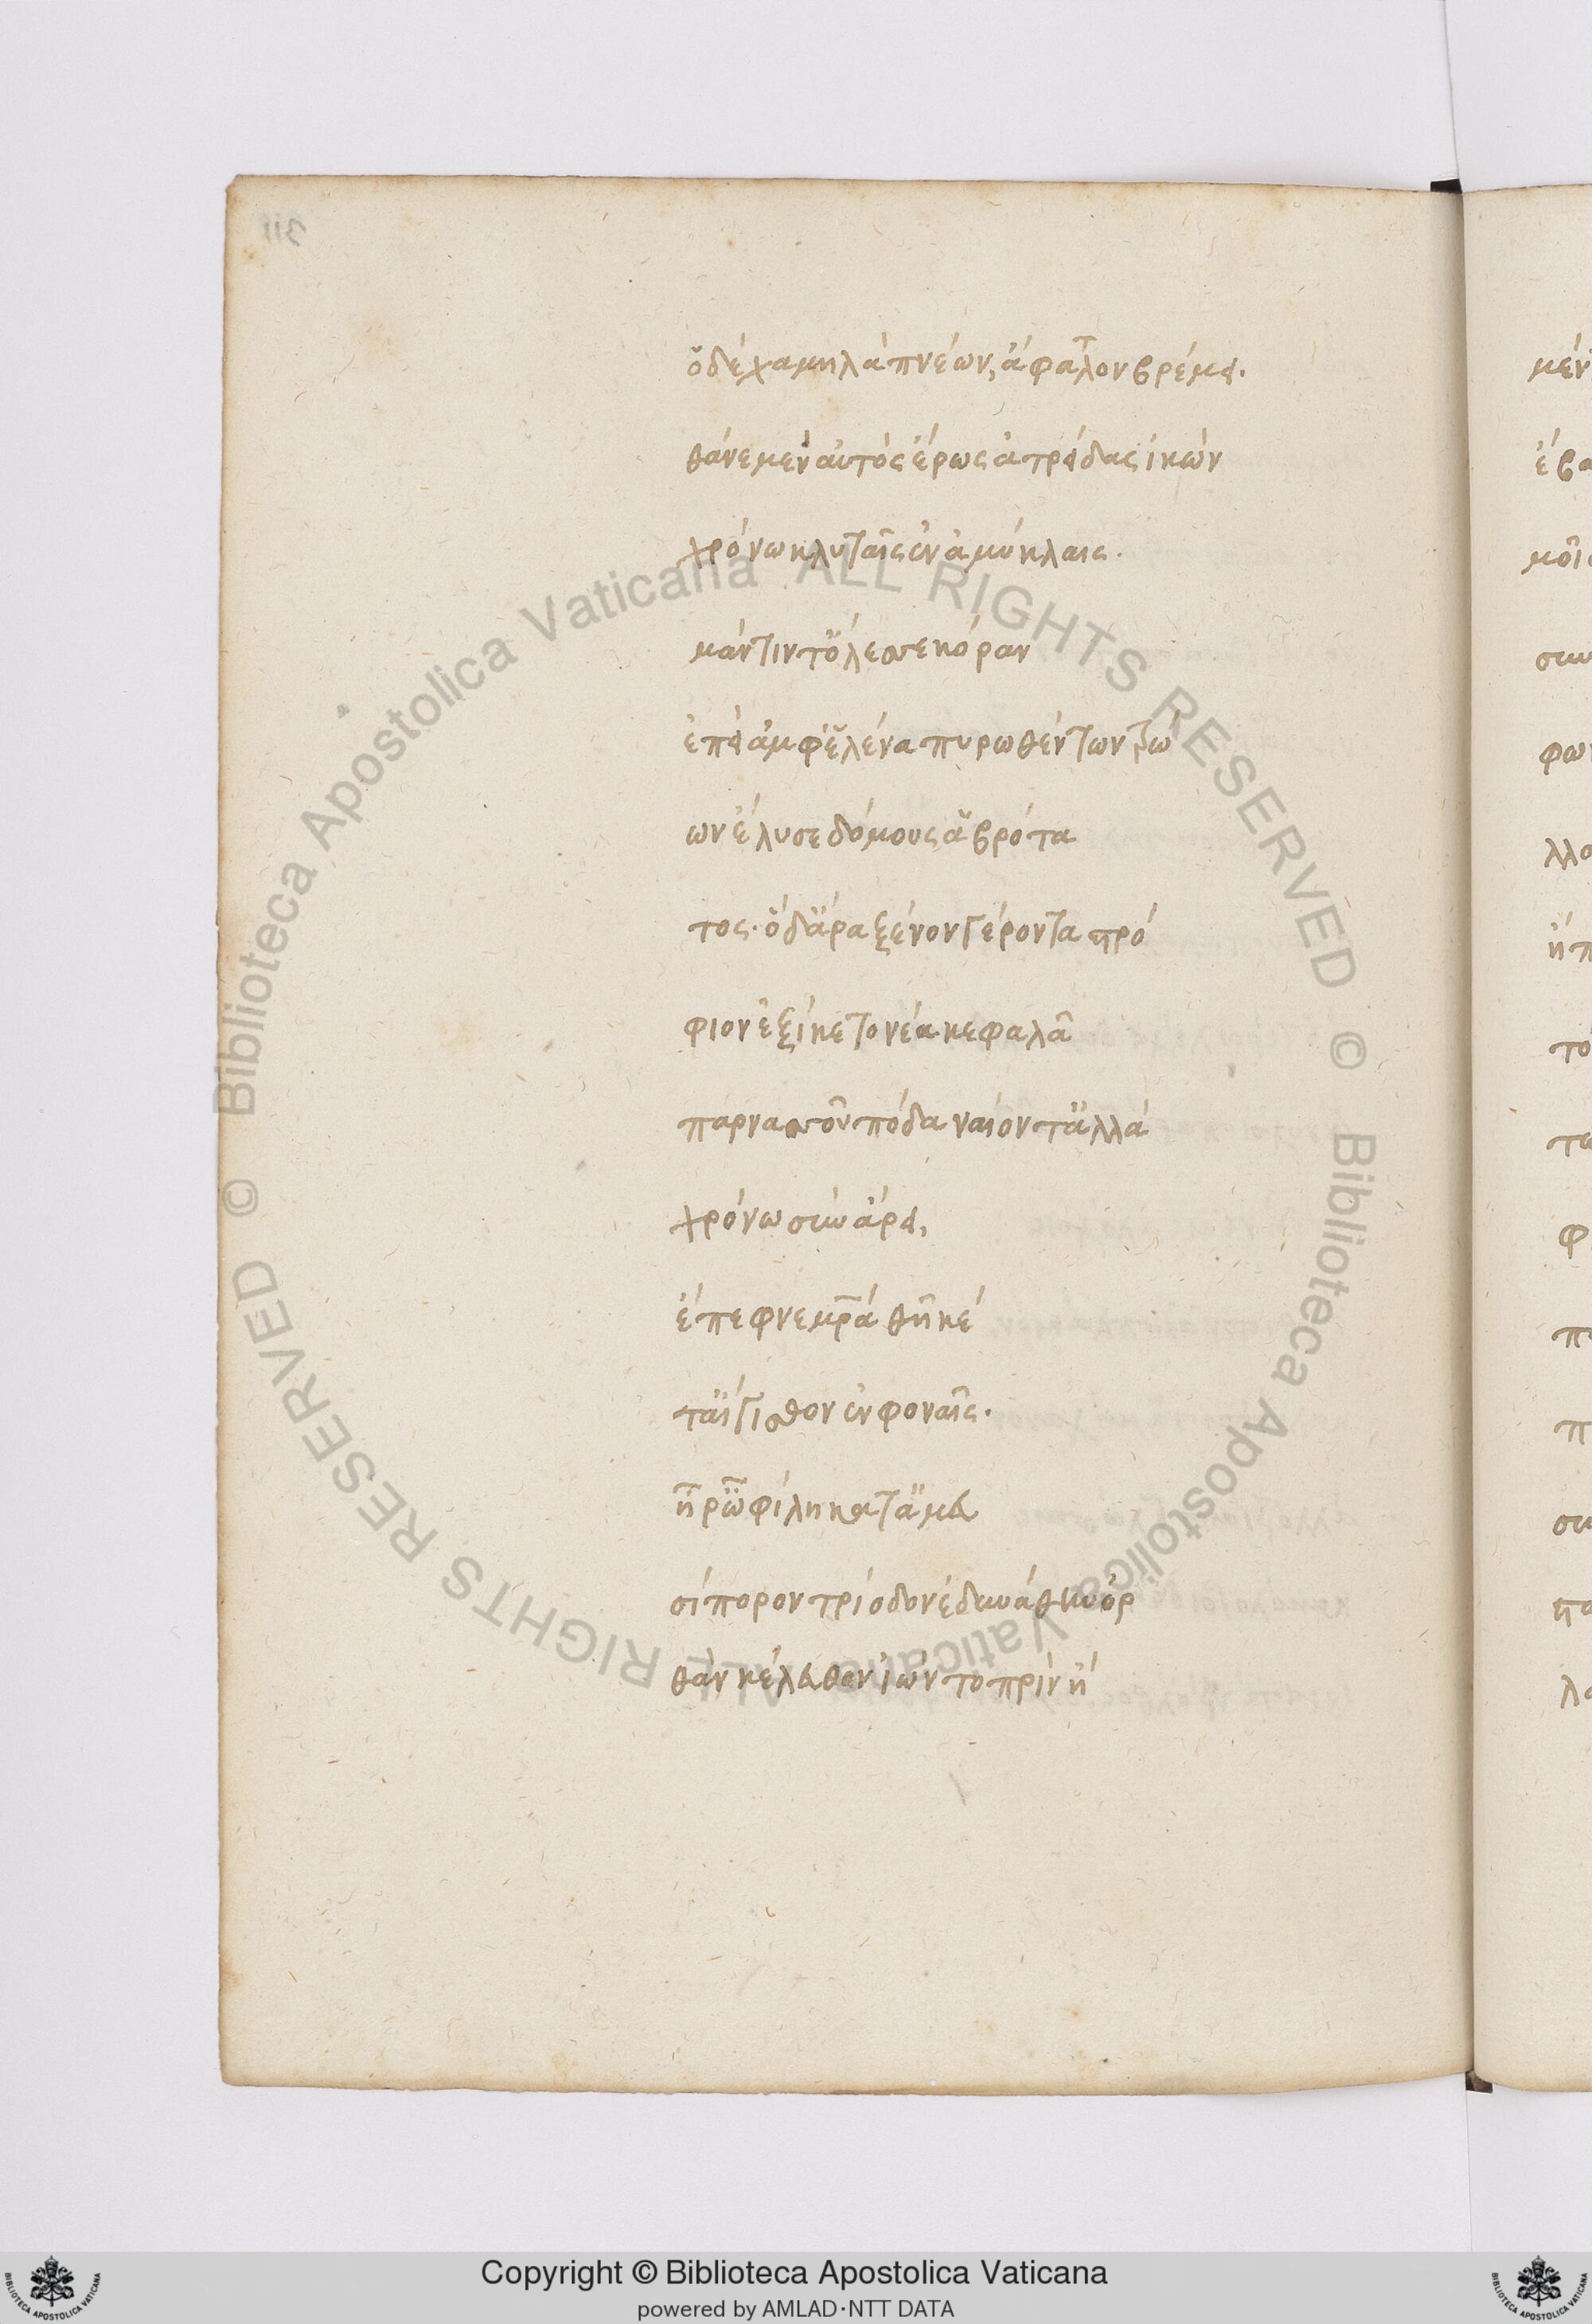 ὁ δὲ χαμηλὰ πνέων, ἄφαντον βρέμει.
θάνε μὲν αὐτὸς ἥρως ἀτρείδας ἱκὼν
χρόνω κλυταῖς ἐν ἀμύκλαις.
μάντιν τ' ὄλεσσε κόραν
ἐπεὶ ἀμφ' ἑλένα πυρωθέντων τρώ
ων ἔλυσε δόμους ἁβρότα
τος. ὁ δ' ἄρα ξένον γέροντα στρό
φιον ἐξίκετο νέα κεφαλᾶ
παρνασσοῦ πόδα ναίοντ' ἀλλὰ
χρόνω σὺν ἄρει,
ἔπεφνε μρ̄α θῆκέ
τ' αἴγισθον ἐν φοναῖς.
ἦρ' ὦ φίλη κατ' ἀμευ
σίπορον τρίοδον ἐδεινάθην ὀρ
θὰν κέλευθον ἰὼν τοπρὶν ἢ
311
Biblioteca Apostolica Vaticana ALL RIGHTS RESERVED ©
Biblioteca Apostolica Vaticana ALL RIGHTS RESERVED ©
Copyright © Biblioteca Apostolica Vaticana
powered by AMLAD·NTT DATA